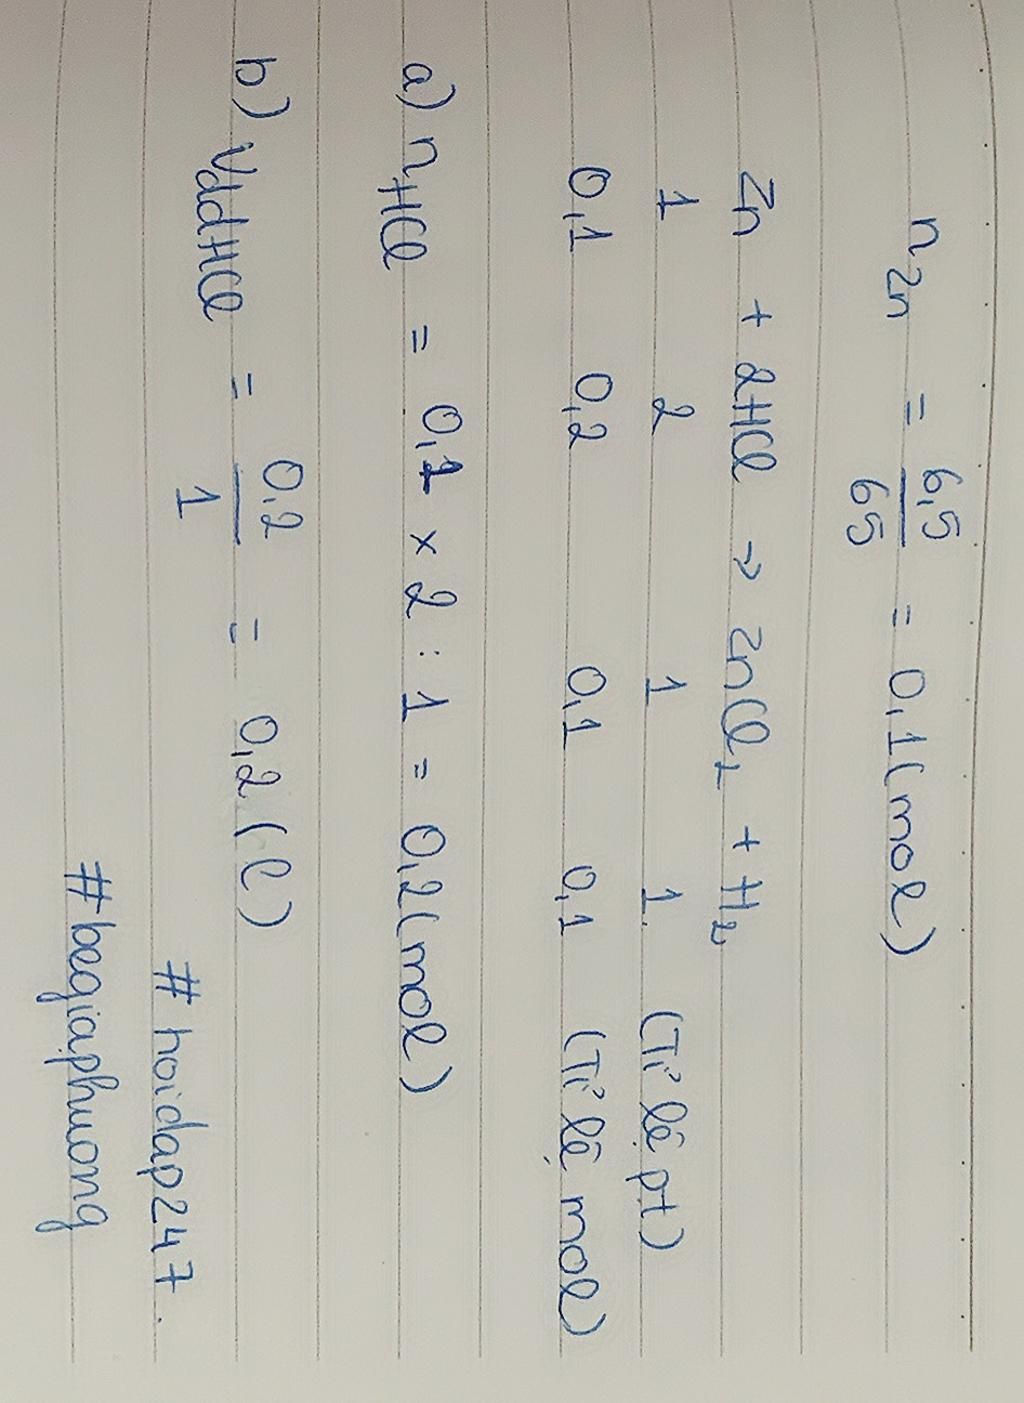 n Zn = 6,5/65 = 0,1 (mol)
Zn + 2HCl → ZnCl2 + H2
1 2 1 1 (Tỉ lệ pt)
0,1 0,2 0,1 0,1 (Tỉ lệ mol)
a) nHCl = 0,1 × 2 : 1 = 0,2 (mol)
b) VddHCl = 0,2/1 = 0,2 (l)
#hoidap247.
#begiaphuong